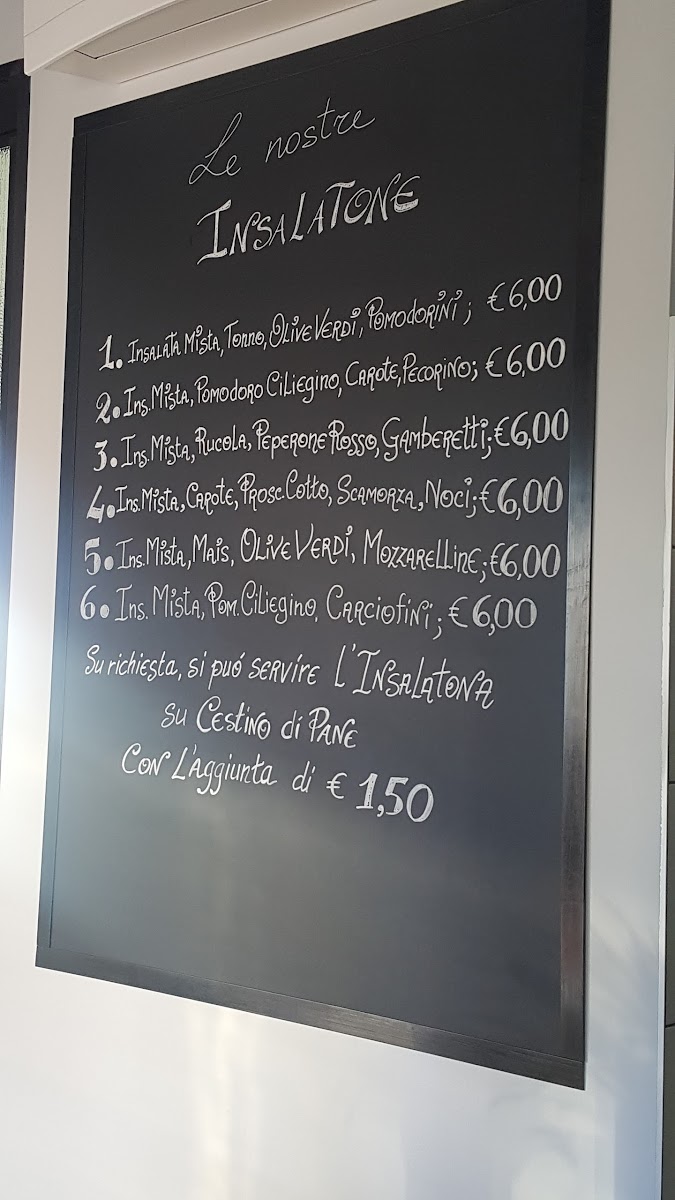 Le nostre
INSALATONE
1. INSALATA MISTA, TONNO, OLIVE VERDI, POMODORINI; €6,00
2. INS. MISTA, POMODORO CILIEGINO, CAROTE, PECORINO; €6,00
3. INS. MISTA, RUCOLA, PEPERONE ROSSO, GAMBERETTI; €6,00
4. INS. MISTA, CAROTE, PROSC. COTTO, SCAMORZA, NOCI; €6,00
5. INS. MISTA, MAIS, OLIVE VERDI, MOZZARELLINE; €6,00
6. INS. MISTA, POM. CILIEGINO, CARCIOFINI; €6,00
Su richiesta, si puó servire L'INSALATONA
su CESTINO di PANE
CON L'Aggiunta di € 1,50